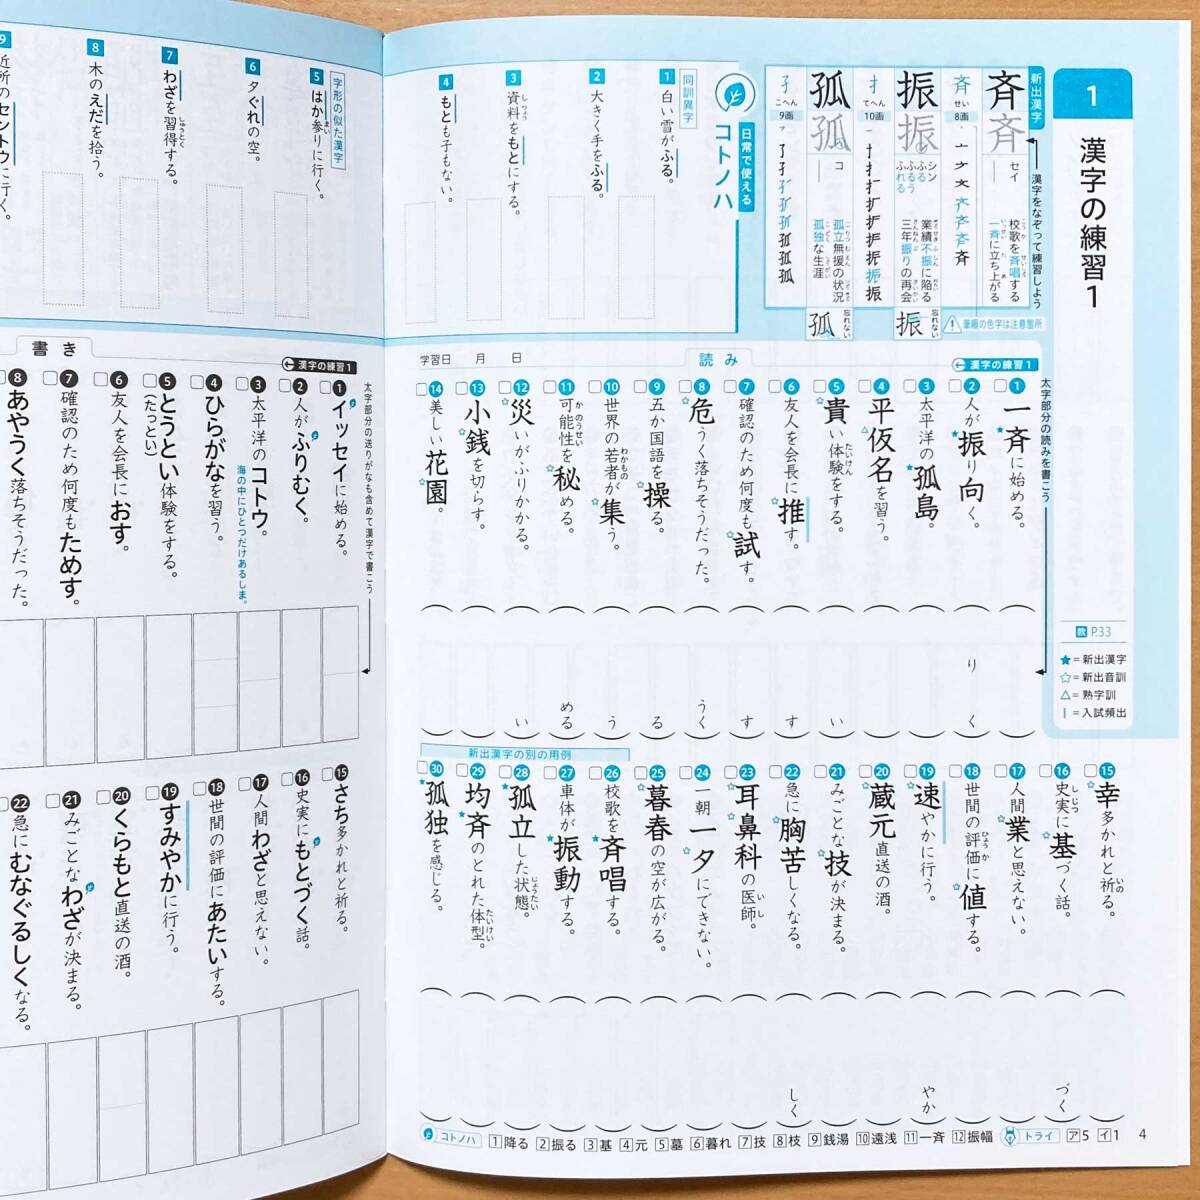 1
漢字の練習1
教 P.33
★=新出漢字
☆=新出音訓
△=熟字訓
|=入試頻出
新出漢字
漢字をなぞって練習しよう
斉 斉
斉 せい
8画
セイ
校歌を斉唱する
一斉に立ち上がる
振 振
扌 てへん
10画
シン
ふる
ふるう
ふれる
業績不振に陥る
三年振りの再会
孤 孤
孑 こへん
9画
コ
孤立無援の状況
孤独な生涯
忘れない 振
忘れない 孤
筆順の色字は注意箇所
日常で使える
コトノハ
同訓異字
1 白い雪がふる。
2 大きく手をふる。
3 資料をもとにする。
4 もとも子もない。
字形の似た漢字
5 はか参りに行く。
6 夕ぐれの空。
7 わざを習得する。
8 木のえだを拾う。
9 近所のセントウに行く。
漢字の練習1
読み
学習日 月 日
太字部分の読みを書こう
1 一斉に始める。
2 人が振り向く。
り く
3 太平洋の孤島。
4 平仮名を習う。
5 貴い体験をする。
い
6 友人を会長に推す。
す
7 確認のため何度も試す。
す
8 危うく落ちそうだった。
うく
9 五か国語を操る。
る
10 世界の若者が集う。
う
11 可能性を秘める。
める
12 災いがふりかかる。
い
13 小銭を切らす。
14 美しい花園。
15 幸多かれと祈る。
16 史実に基づく話。
づく
17 人間業と思えない。
18 世間の評価に値する。
19 速やかに行う。
やか
20 蔵元直送の酒。
21 みごとな技が決まる。
22 急に胸苦しくなる。
しく
23 耳鼻科の医師。
24 一朝一夕にできない。
25 暮春の空が広がる。
新出漢字の別の用例
26 校歌を斉唱する。
27 車体が振動する。
28 孤立した状態。
29 均斉のとれた体型。
30 孤独を感じる。
漢字の練習1
書き
太字部分の送りがなも含めて漢字で書こう
1 イッセイに始める。
2 人がふりむく。
3 太平洋のコトウ。
海の中にひとつだけあるしま。
4 ひらがなを習う。
5 とうとい体験をする。
(たっとい)
6 友人を会長におす。
7 確認のため何度もためす。
8 あやうく落ちそうだった。
15 さち多かれと祈る。
16 史実にもとづく話。
17 人間わざと思えない。
18 世間の評価にあたいする。
19 すみやかに行う。
20 くらもと直送の酒。
21 みごとなわざが決まる。
22 急にむなぐるしくなる。
コトノハ 1降る 2振る 3基 4元 5墓 6暮れ 7技 8枝 9銭湯 10遠浅 11一斉 12振幅 トライ ア5 イ1
4